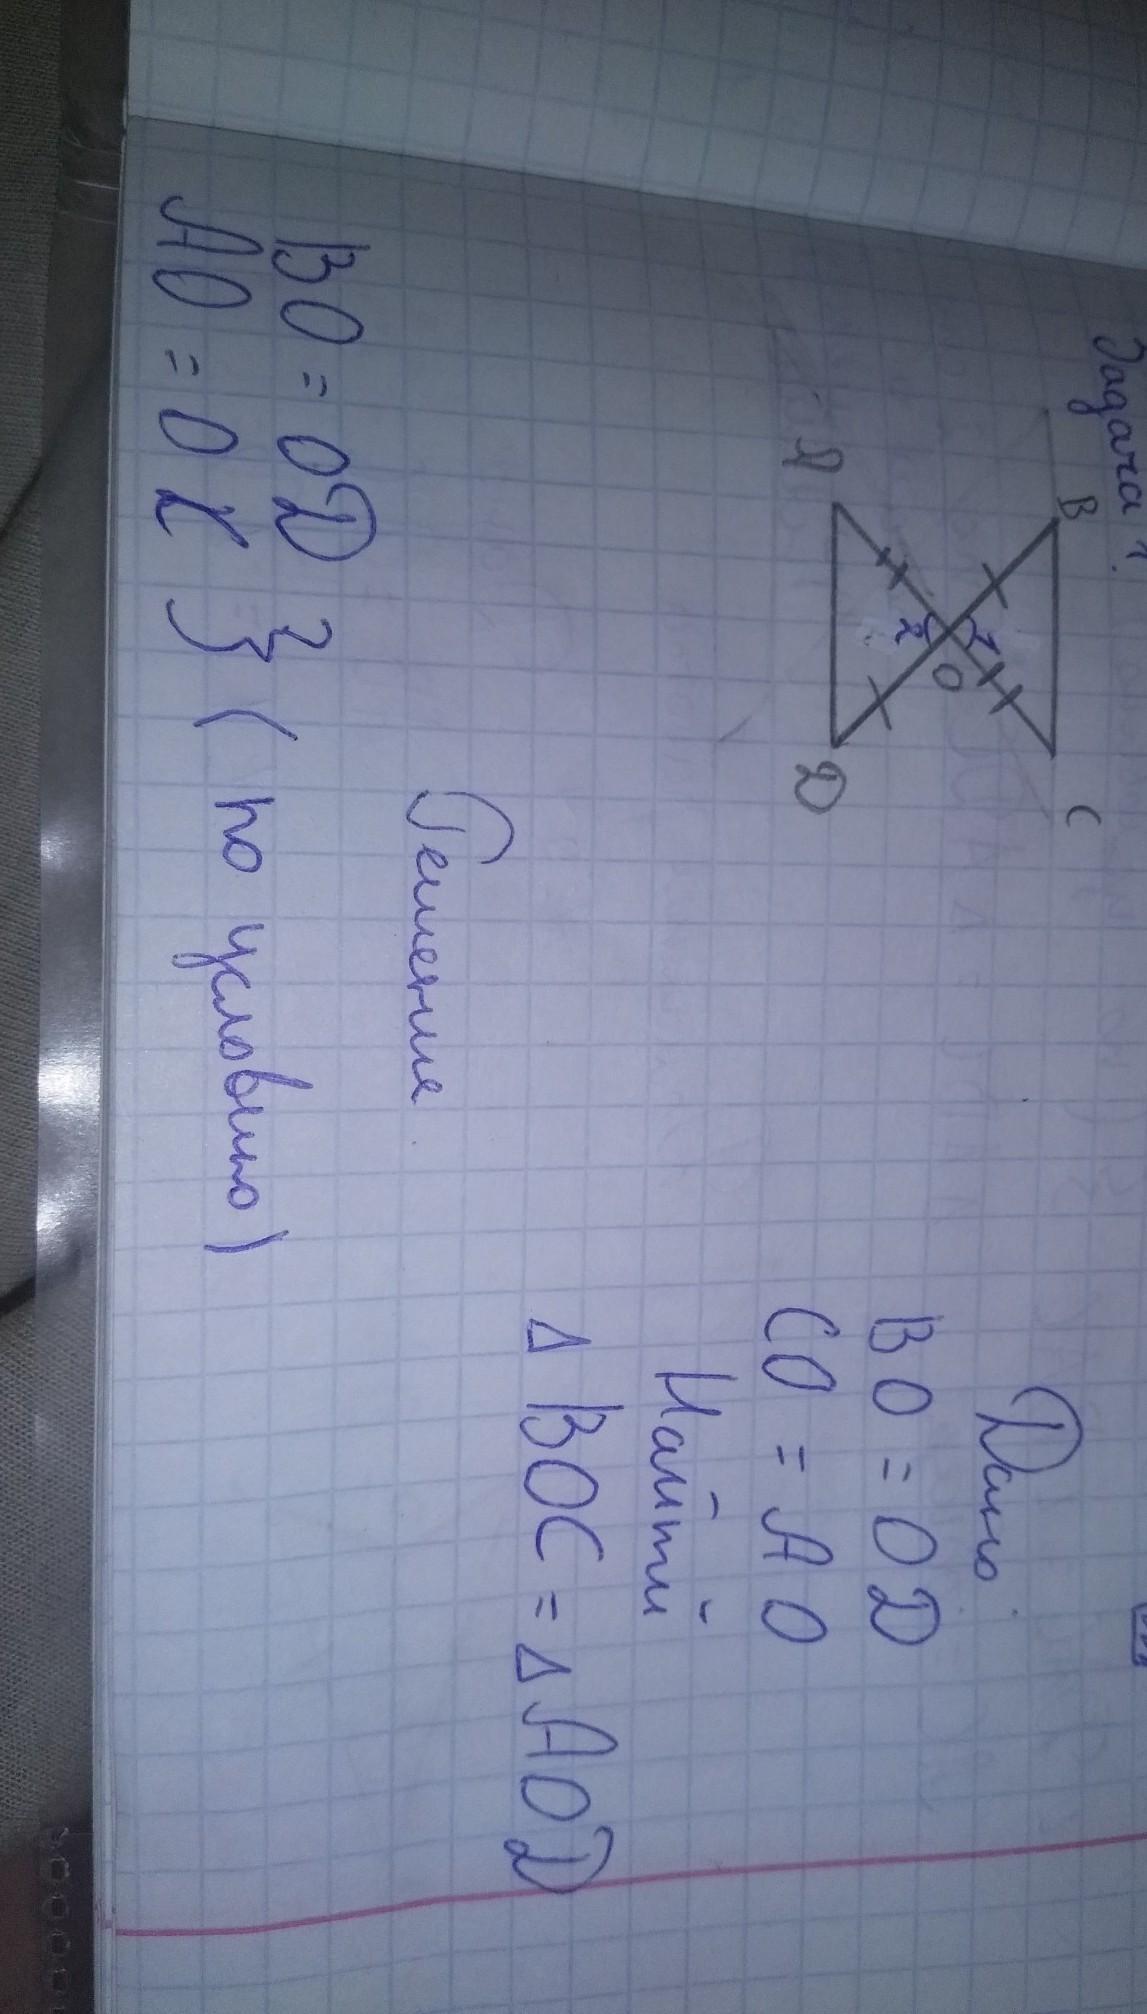 Задача 1.
B
C
1
O
2
A
D
Дано
BO = OD
CO = AO
Найти
Δ BOC = Δ AOD
Решение
BO = OD
AO = OC } (по условию)